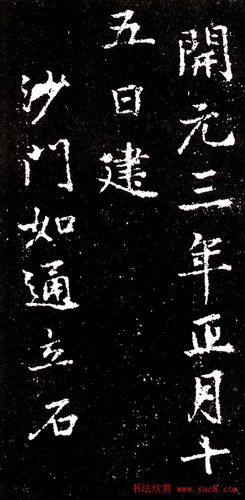 開元三年正月十
五日建
沙門如通立石
书法欣赏 www.yac8.com